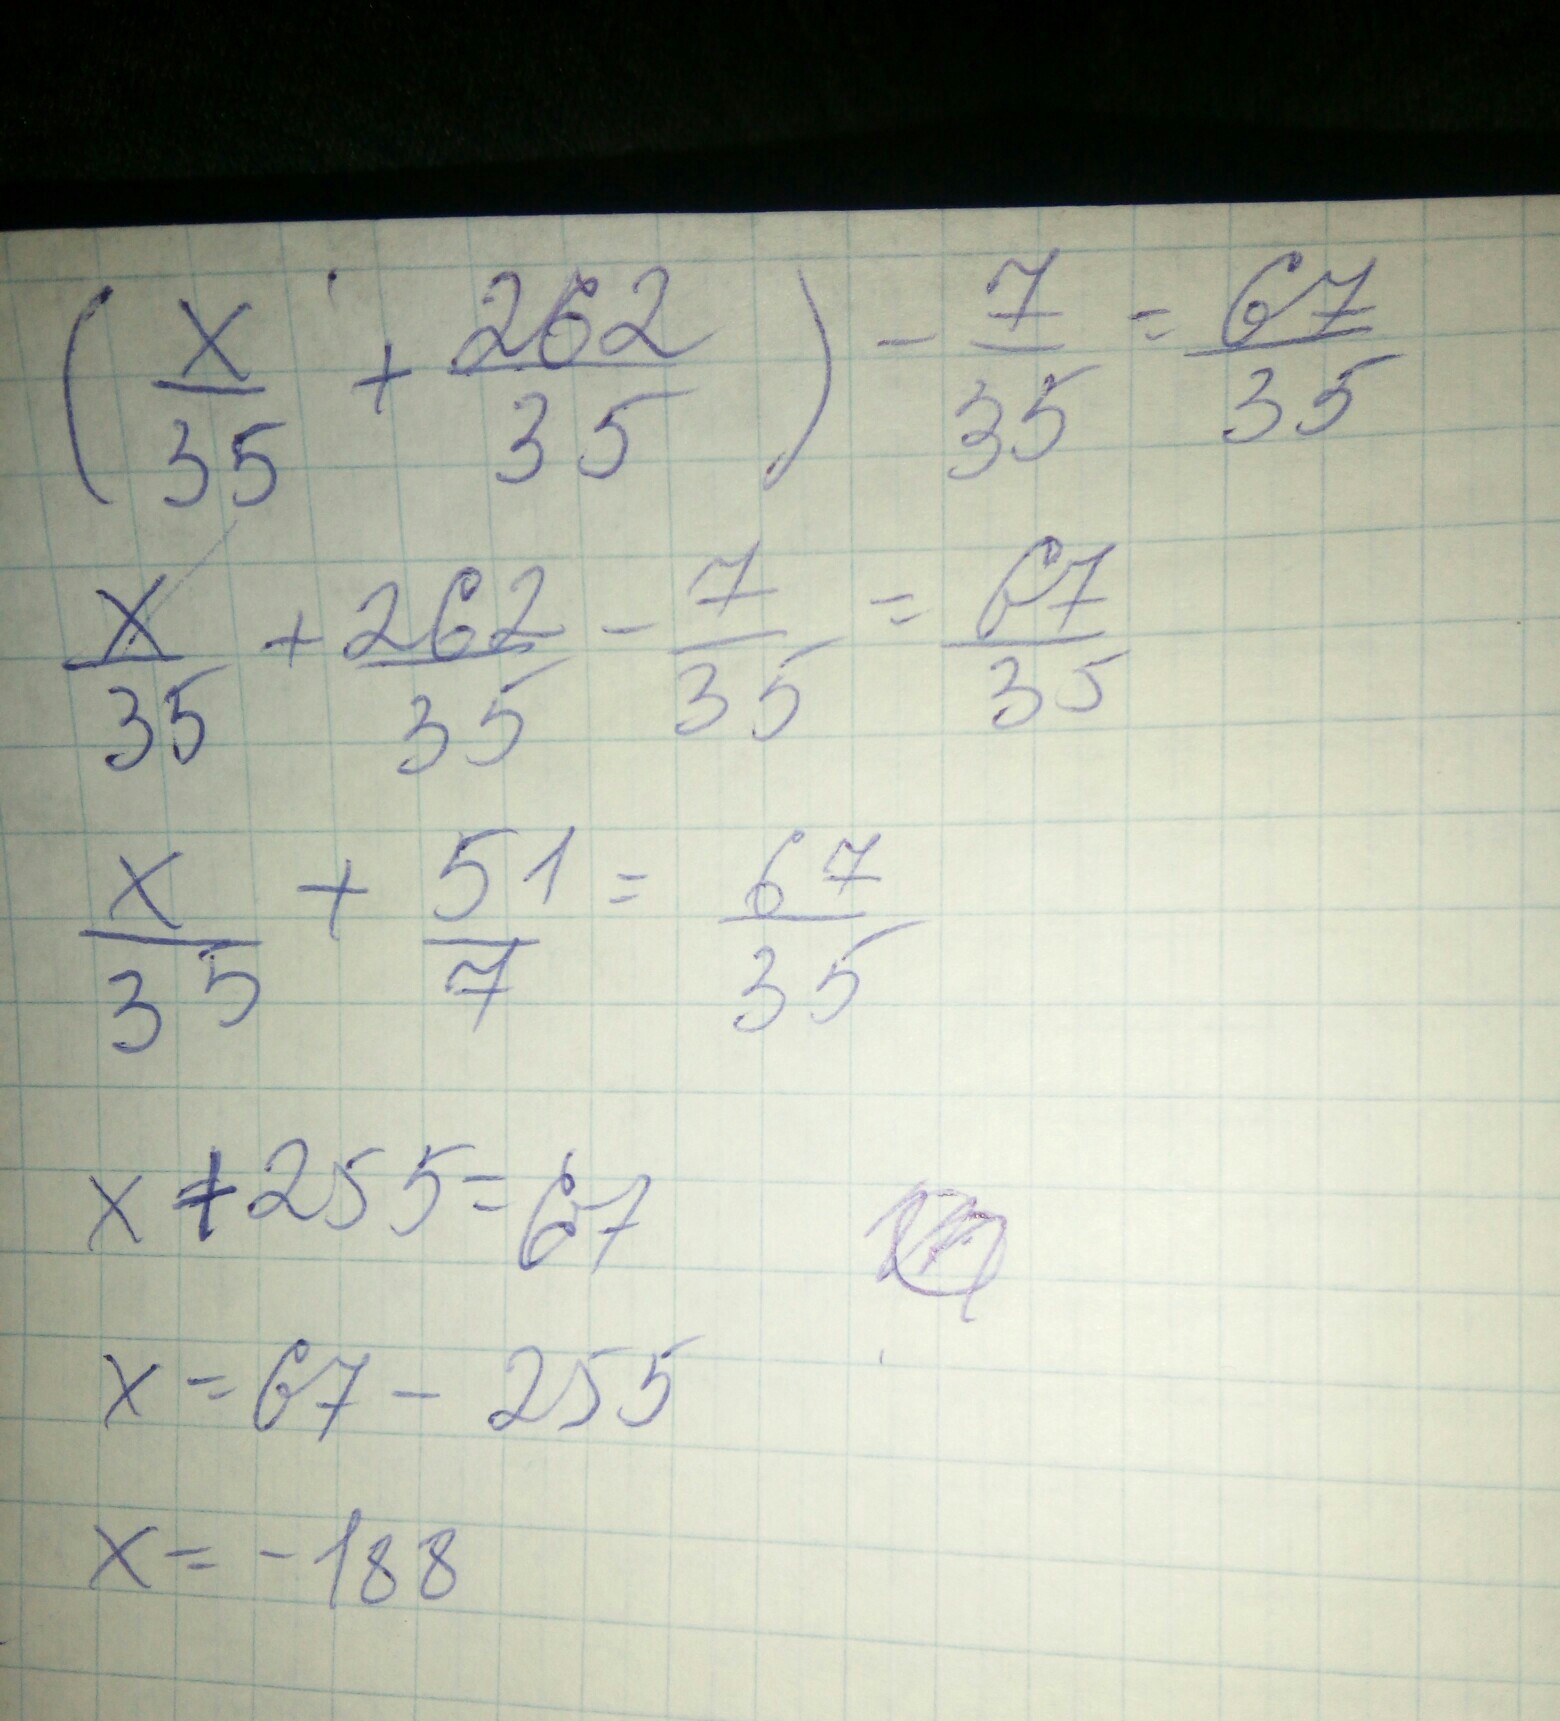 (x/35 + 262/35) - 7/35 = 67/35
x/35 + 262/35 - 7/35 = 67/35
x/35 + 51/7 = 67/35
x + 255 = 67
x = 67 - 255
x = -188